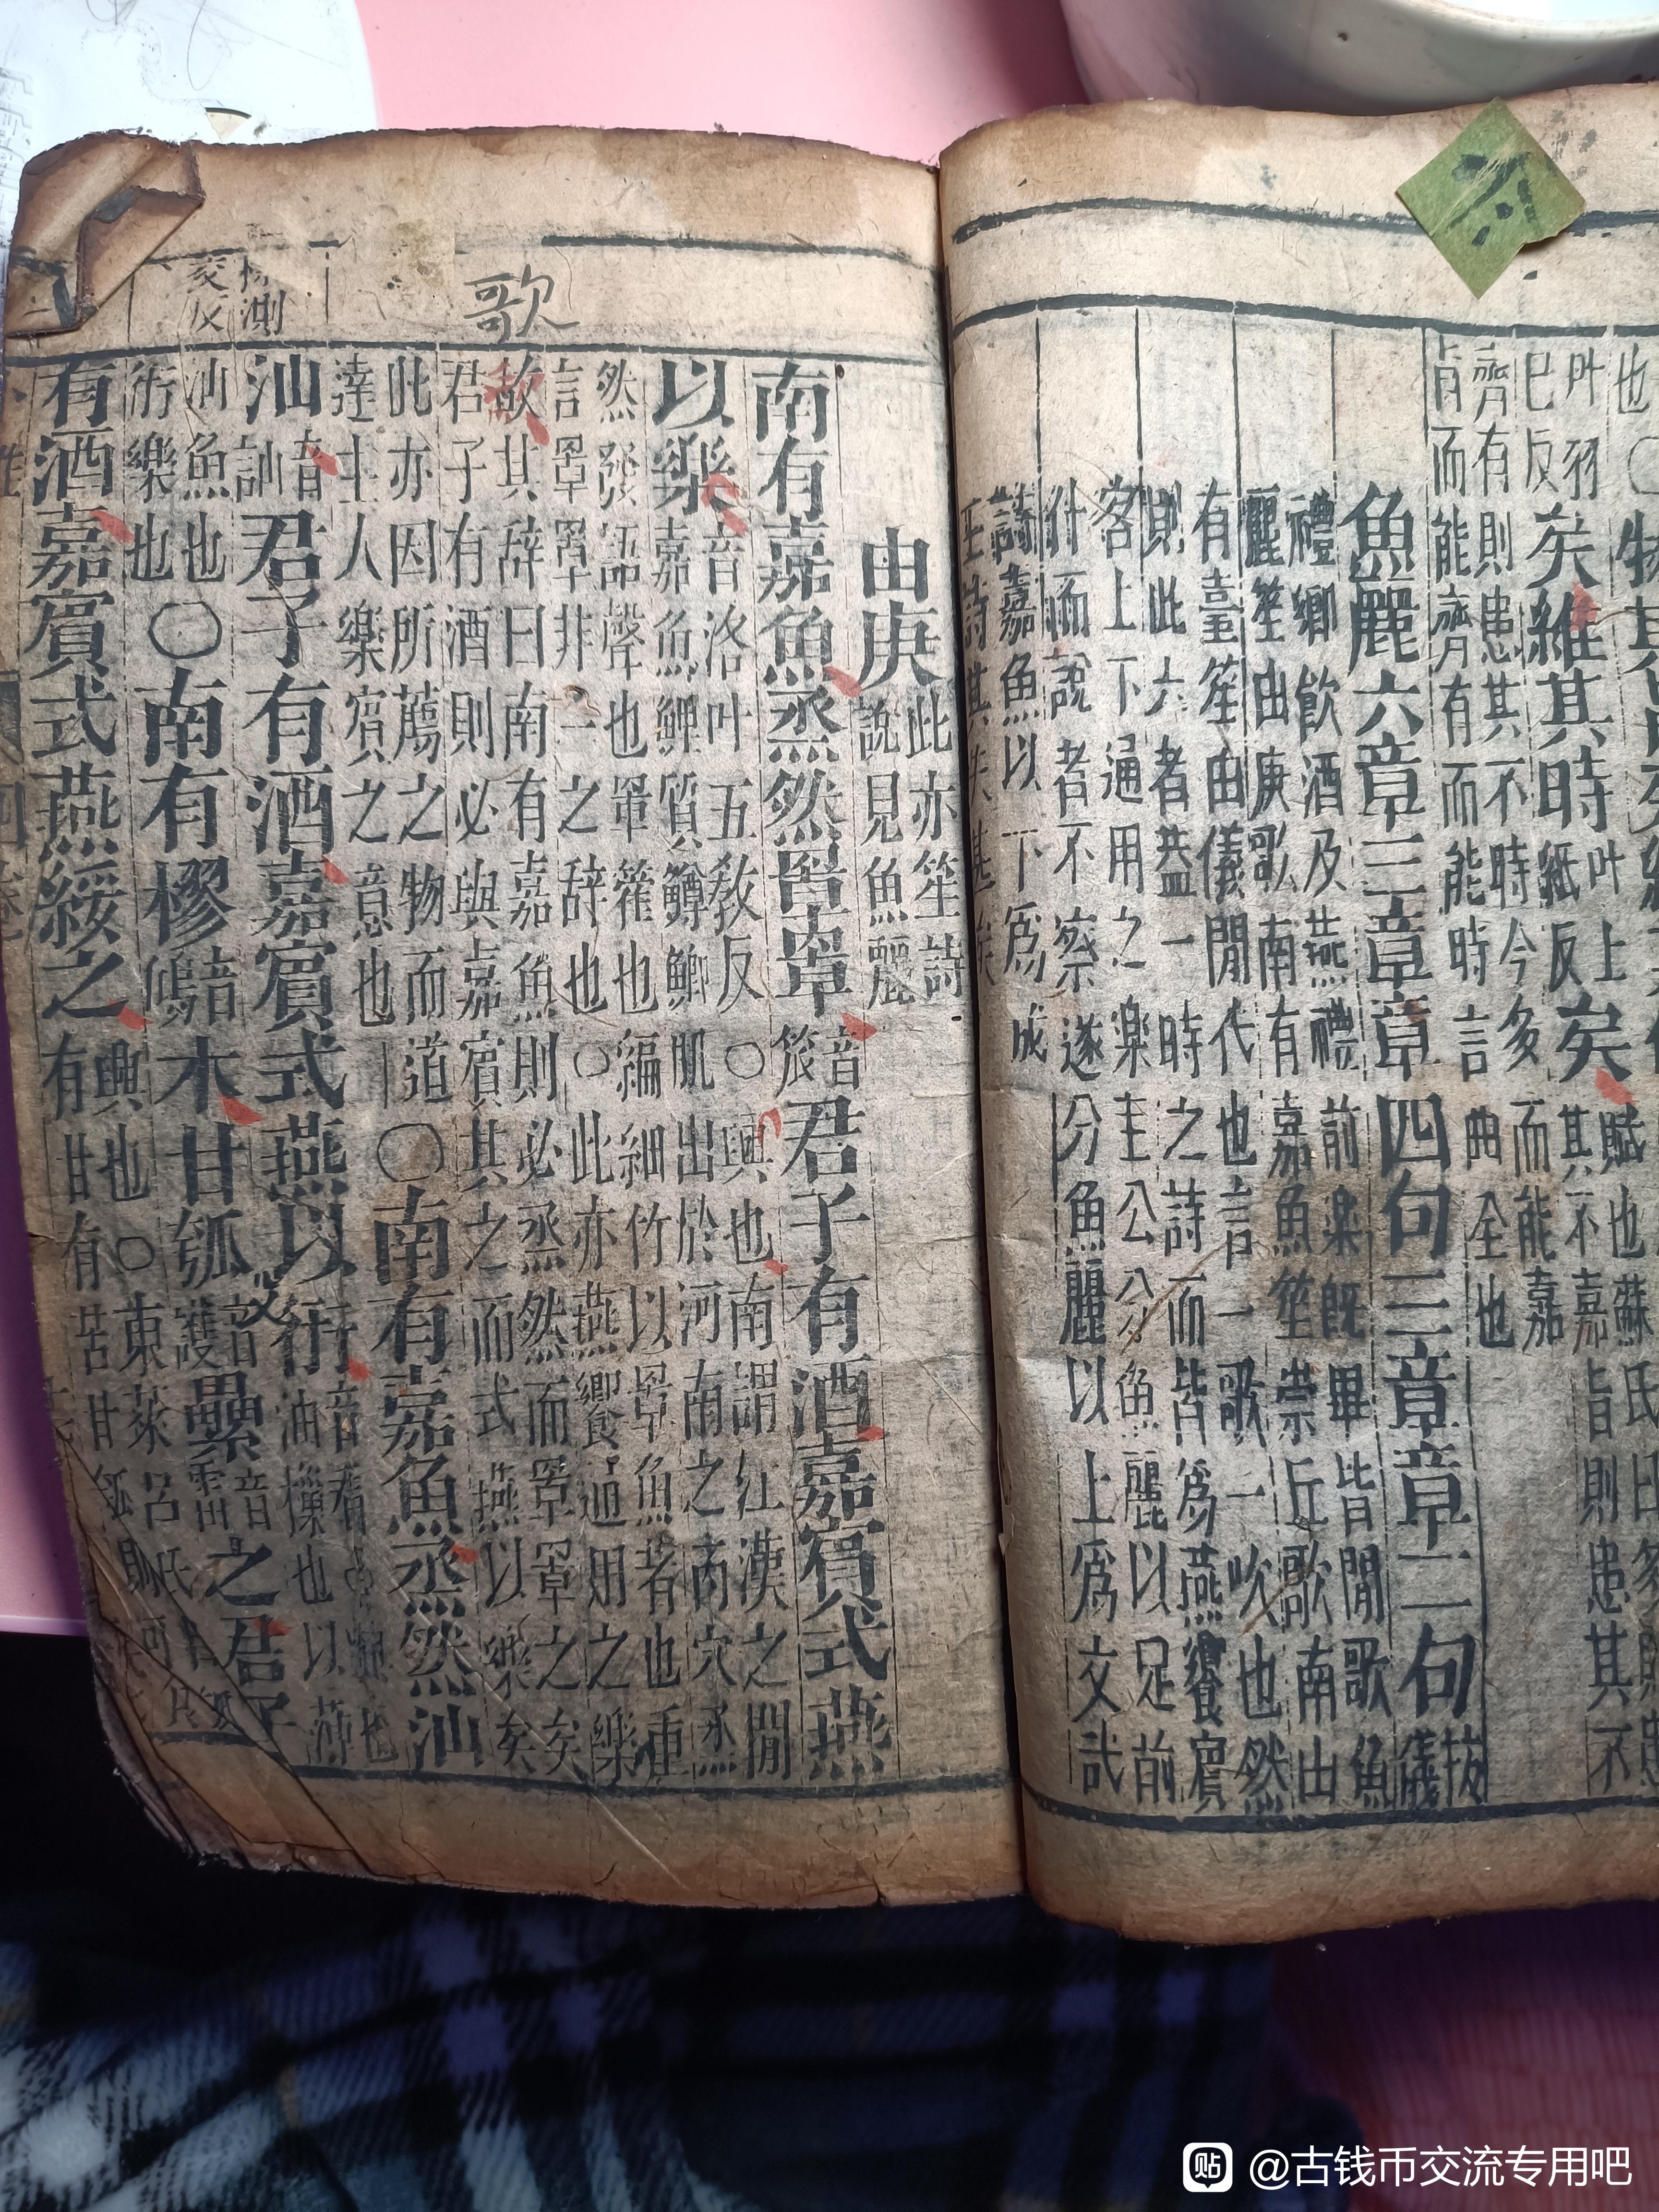 也○物其
叶羽
已反
矣維其時
叶上
紙反
矣
賦也蘇氏曰多則患
其不嘉旨則患其不
齊有則患其不時今多而能嘉
旨而能齊有而能時言曲全也
魚麗六章三章章四句三章章二句
按
儀
禮鄉飲酒及燕禮前樂既畢皆閒歌魚
麗笙由庚歌南有嘉魚笙崇丘歌南山
有臺笙由儀閒代也言一歌一吹也然
則此六者蓋一時之詩而皆爲燕饗賓
客上下通用之樂毛公分魚麗以足前
什而說者不察遂分魚麗以上爲文武
詩嘉魚以下爲成
王詩其失甚矣
由庚
此亦笙詩
說見魚麗
南有嘉魚烝然罩罩
音
君子有酒嘉賓式燕
以樂
音洛叶五敎反○興也南謂江漢之閒
嘉魚鯉質鱒鯽肌出於河南之丙穴烝
然發語聲也罩篧也編細竹以罩魚者也重
言罩罩非一之辞也○此亦燕饗通用之樂
歌
歌其辞曰南有嘉魚則必烝然而罩罩之矣
君子有酒則必與嘉賓共之而式燕以樂矣
此亦因所薦之物而道
達主人樂賓之意也
○南有嘉魚烝然汕
汕
音
訕
君子有酒嘉賓式燕以衎
音看
油樔也以薄
樔測
交反
汕魚也
衎樂也
○南有樛
音
鳩
木甘瓠
音
護
纍
音
雷
之君子
有酒嘉賓式燕綏之
興也○東萊呂氏曰瓠
有甘有苦甘瓠則可
贴 @古钱币交流专用吧